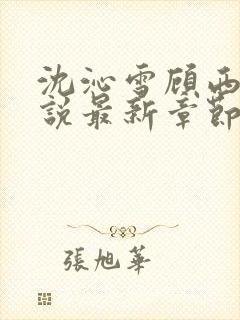 沈沁雪顾西
説最新章節
張旭華